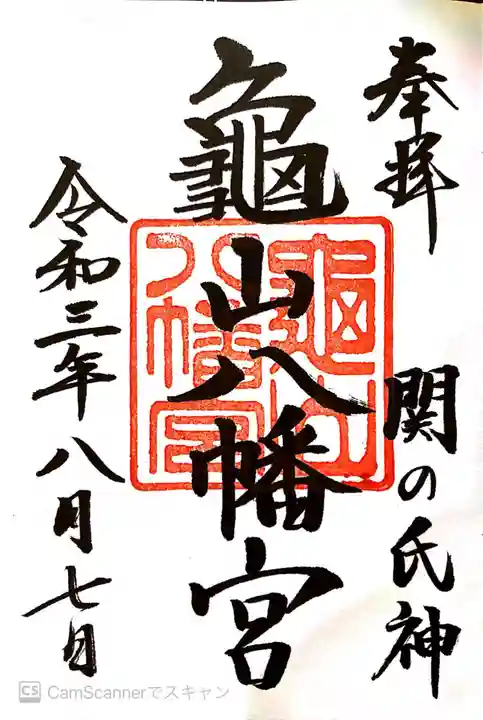 奉拝
関の氏神
龜山八幡宮
龜山八幡宮
令和三年八月七日
CS CamScannerでスキャン